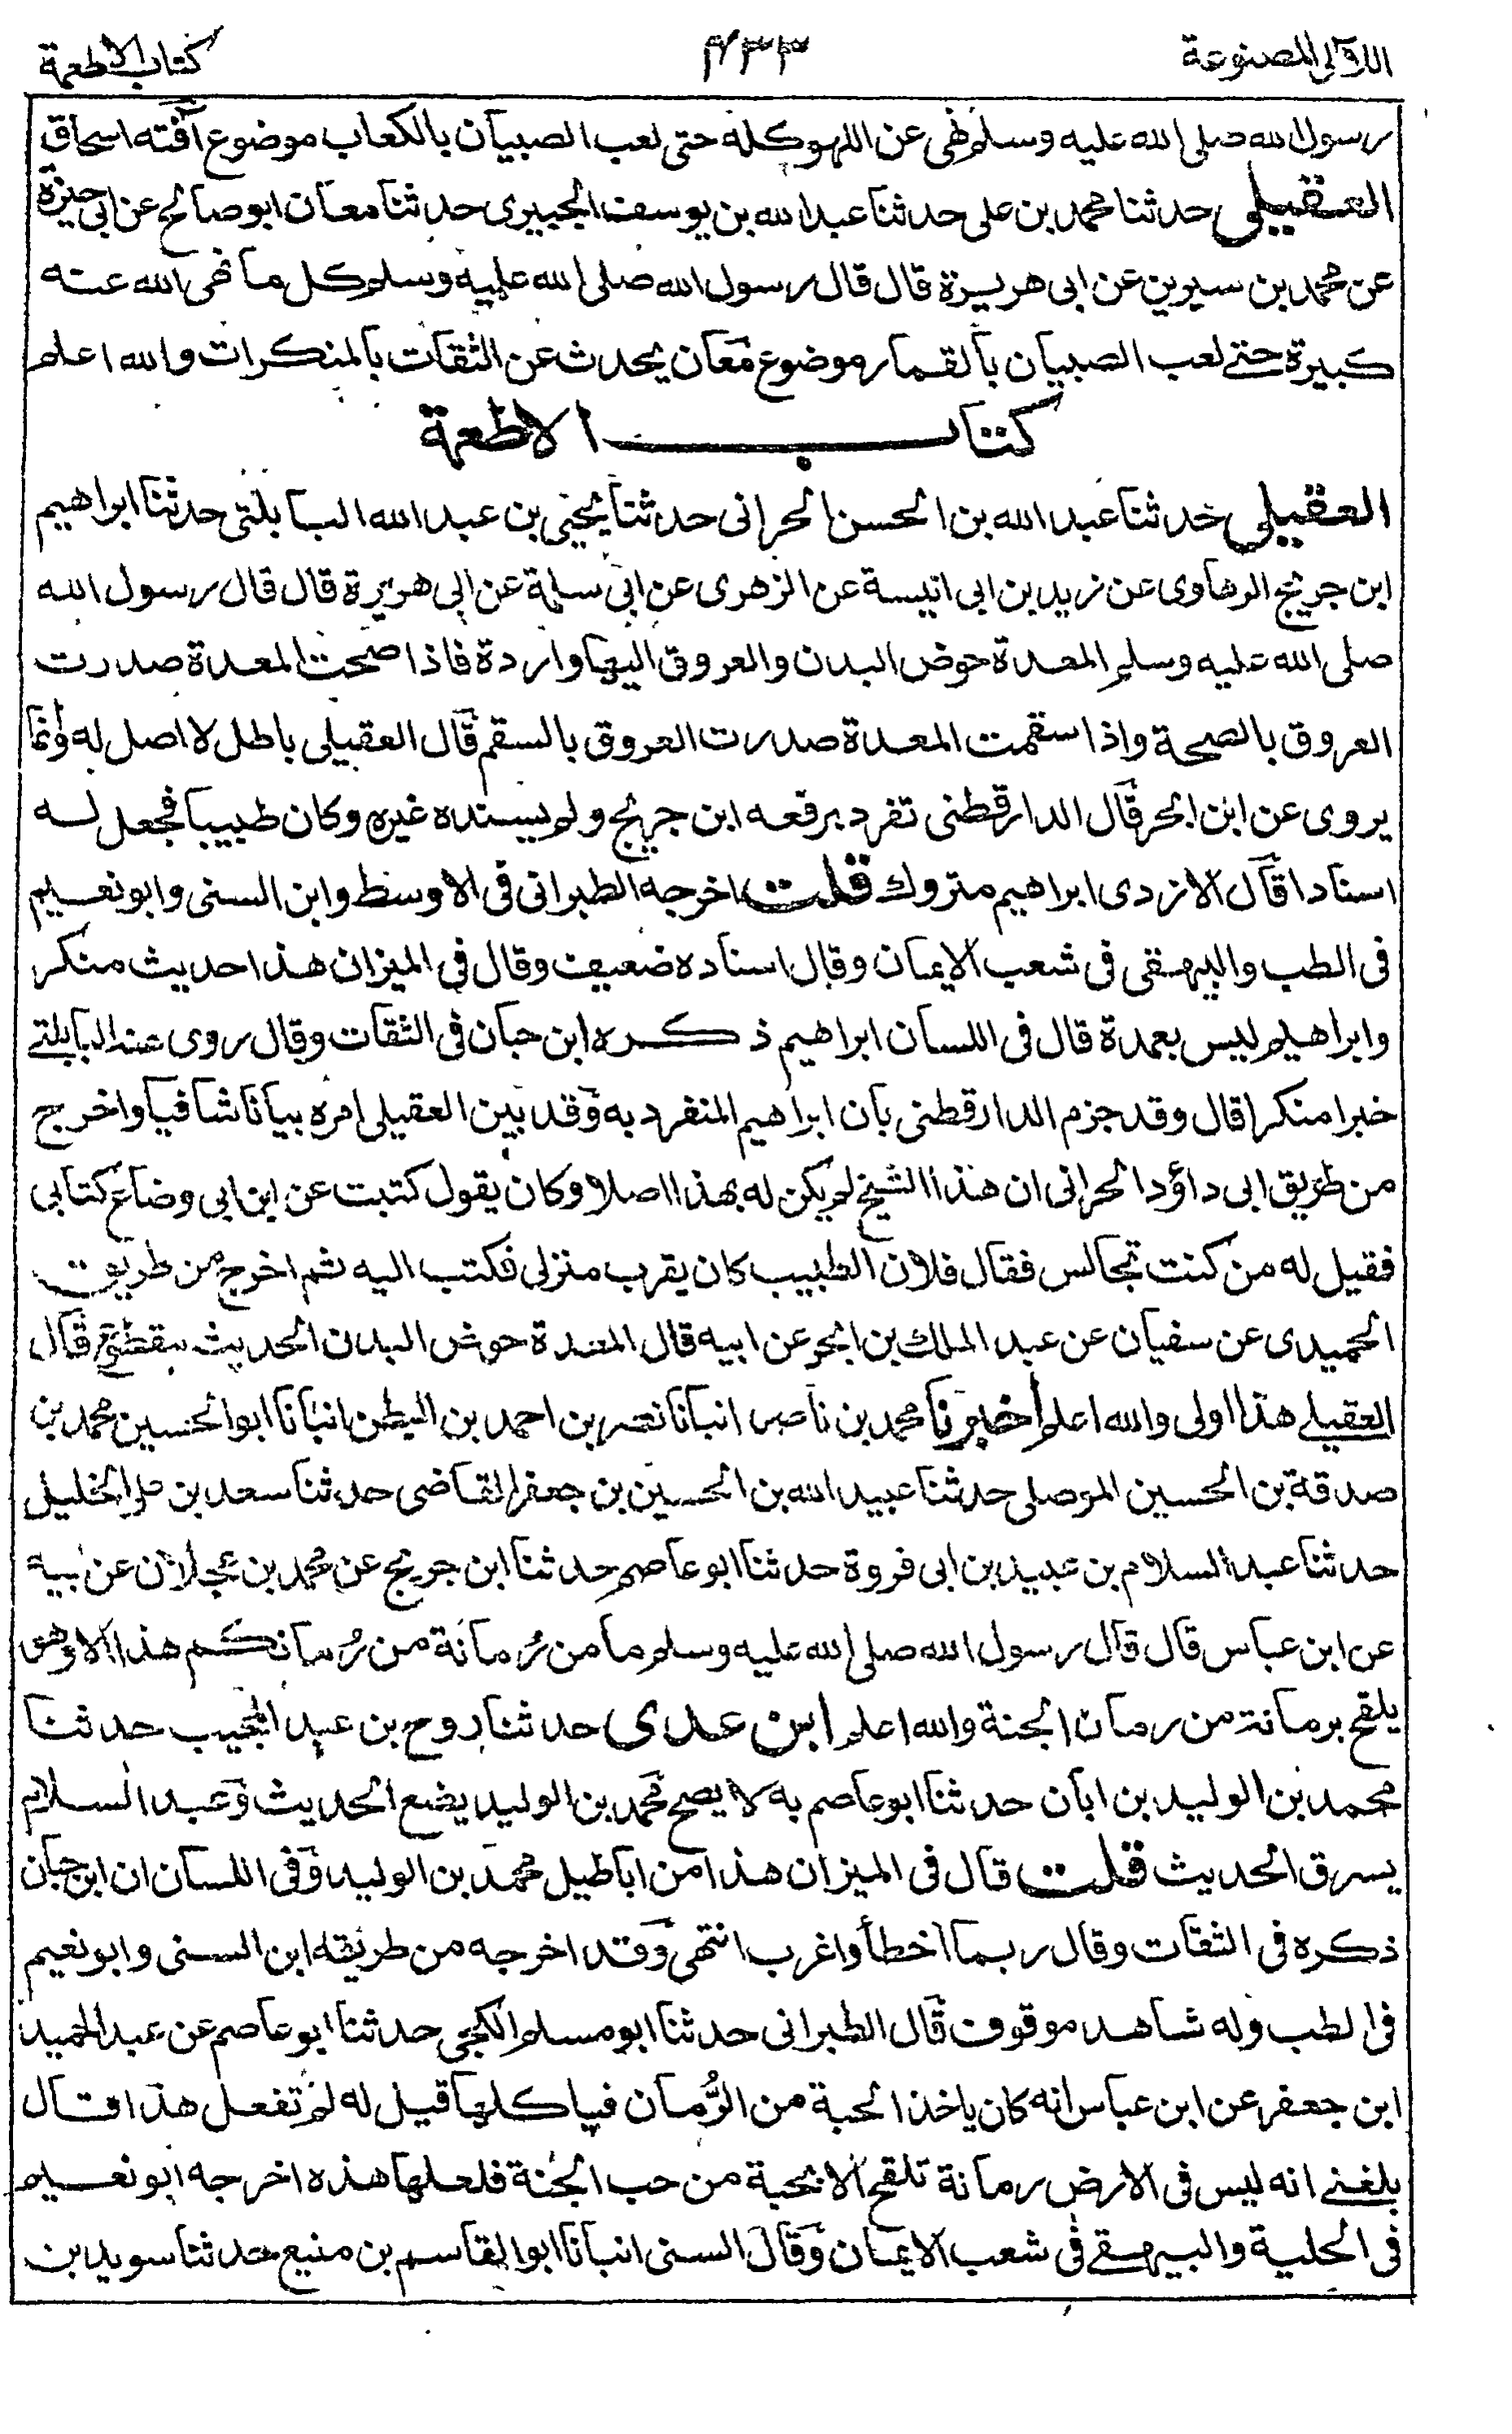 اللآلي المصنوعة
۴۳۳
كتاب الاطعمة
رسول الله صلى الله عليه وسلم نهى عن اللهو كله حتى لعب الصبيان بالكعاب موضوع آفته اسحاق
العقيلى حدثنا محمد بن على حدثنا عبد الله بن يوسف الجبيرى حدثنا معان ابو صالح عن ابى حرة
عن محمد بن سيرين عن ابى هريرة قال قال رسول الله صلى الله عليه وسلم كل ما نهى الله عنه
كبيرة حتے لعب الصبيان بالقمار موضوع معان يحدث عن الثقات بالمنكرات والله اعلم
كتاب الاطعمة
العقيلى حدثنا عبد الله بن الحسن الحرانى حدثنا يحيى بن عبد الله البابلتى حدثنا ابراهيم
ابن جريج الرهاوى عن زيد بن ابى انيسة عن الزهرى عن ابى سلمة عن ابى هريرة قال قال رسول الله
صلى الله عليه وسلم المعدة حوض البدن والعروق اليها واردة فاذا صحت المعدة صدرت
العروق بالصحة واذا سقمت المعدة صدرت العروق بالسقم قال العقيلى باطل لا اصل له وانما
يروى عن ابن ابجر قال الدارقطنى تفرد برفعه ابن جريج ولم يسنده غيره وكان طبيبا فجعل له
اسنادا قال الازدى ابراهيم متروك قلت اخرجه الطبرانى فى الاوسط وابن السنى وابو نعيم
فى الطب والبيهقى فى شعب الايمان وقال اسناده ضعيف وقال فى الميزان هذا حديث منكر
وابراهيم ليس بعمدة قال فى اللسان ابراهيم ذكره ابن حبان فى الثقات وقال روى عنه البابلتے
خبرا منكرا قال وقد جزم الدارقطنى بان ابراهيم المنفرد به وقد بين العقيلى امره بيانا شافيا واخرج
من طريق ابى داؤد الحرانى ان هذا الشيخ لم يكن له بهذا اصلا وكان يقول كتبت عن ابن ابى وضاع كتابى
فقيل له من كنت تجالس فقال فلان الطبيب كان يقرب منزلى فكتب اليه ثم اخرج من طريق
الحميدى عن سفيان عن عبد الملك بن ابجر عن ابيه قال المعدة حوض البدن الحديث قال
العقيلے هذا اولى والله اعلم اخبرنا محمد بن ناصر انبانا نصر بن احمد بن البطر انبانا ابو الحسين محمد بن
صدقة بن الحسين الموصلى حدثنا عبيد الله بن الحسين بن جعفر القاضى حدثنا سعد بن على الخليل
حدثنا عبد السلام بن عبيد بن ابى فروة حدثنا ابو عاصم حدثنا ابن جريج عن محمد بن عجلان عن ابيه
عن ابن عباس قال قال رسول الله صلى الله عليه وسلم ما من رُمانة من رُمانكم هذا الا وهى
يلقح برمانة من رمان الجنة والله اعلم ابن عدى حدثنا روح بن عبد المجيب حدثنا
محمد بن الوليد بن ابان حدثنا ابو عاصم به لا يصح محمد بن الوليد يضع الحديث وعبد السلام
يسرق الحديث قلت قال فى الميزان هذا من اباطيل محمد بن الوليد وفى اللسان ان ابن حبان
ذكره فى الثقات وقال ربما اخطأ واغرب انتهى وقد اخرجه من طريقه ابن السنى وابو نعيم
فى الطب وله شاهد موقوف قال الطبرانى حدثنا ابو مسلم الكجى حدثنا ابو عاصم عن عبد الحميد
ابن جعفر عن ابن عباس انه كان ياخذ الحبة من الرُّمان فياكلها قيل له لم تفعل هذا قال
بلغنے انه ليس فى الارض رمانة تلقح الا بحبة من حب الجنة فلعلها هذه اخرجه ابو نعيم
فى الحلية والبيهقے فى شعب الايمان وقال السنى انبانا ابو القاسم بن منيع حدثنا سويد بن